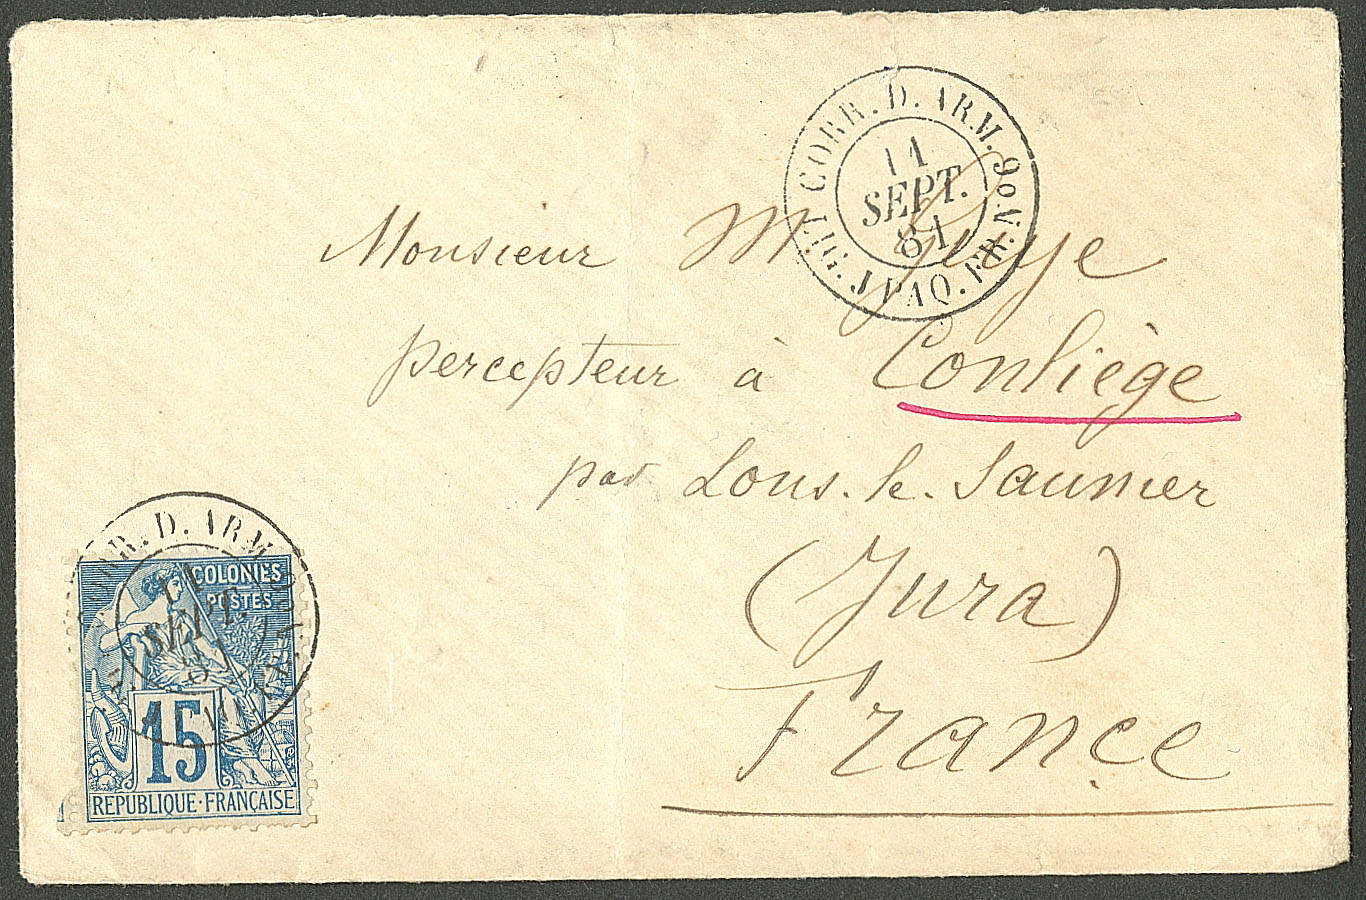 CORR. D. ARM.
LIG. T PAQ. FR. No 6
11
SEPT.
81
Monsieur M
percepteur à Conliège
par Lons. le. Saunier
(Jura)
France
CORR. D. ARM
11
SEPT.
81
COLONIES
POSTES
15
REPUBLIQUE·FRANÇAISE